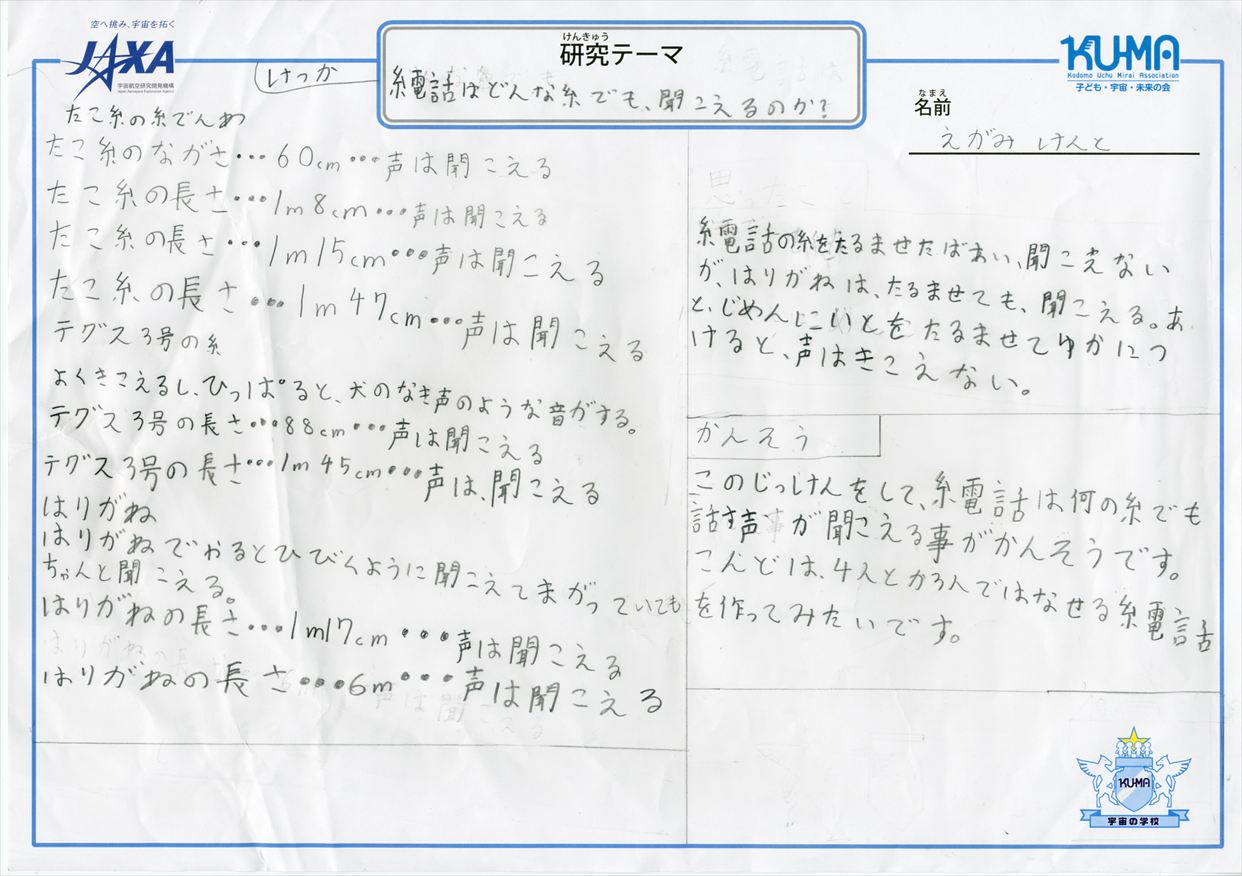 空へ挑み、宇宙を拓く
JAXA
宇宙航空研究開発機構
Japan Aerospace Exploration Agency
けんきゅう
研究テーマ
糸電話はどんな糸でも、聞こえるのか?
KU-MA
Kodomo Uchu Mirai Association
子ども・宇宙・未来の会
なまえ
名前
えがみ けんと
けっか
たこ糸の糸でんわ
たこ糸のながさ…60cm…声は聞こえる
たこ糸の長さ…1m8cm…声は聞こえる
たこ糸の長さ…1m15cm…声は聞こえる
たこ糸の長さ…1m47cm…声は聞こえる
テグス3号の糸
よくきこえるし、ひっぱると、犬のなき声のような音がする。
テグス3号の長さ…88cm…声は聞こえる
テグス3号の長さ…1m45cm…声は、聞こえる
はりがね
はりがねでやるとひびくように聞こえてまがっていても
ちゃんと聞こえる。
はりがねの長さ…1m17cm…声は聞こえる
はりがねの長さ…6m…声は聞こえる
思ったこと
糸電話の糸をたるませたばあい、聞こえない
が、はりがねは、たるませても、聞こえる。あ
と、じめんにいとをたるませてゆかにつ
けると、声はきこえない。
かんそう
このじっけんをして、糸電話は何の糸でも
話す声が聞こえる事がかんそうです。
こんどは、4人とか3人ではなせる糸電話
を作ってみたいです。
KU-MA
宇宙の学校